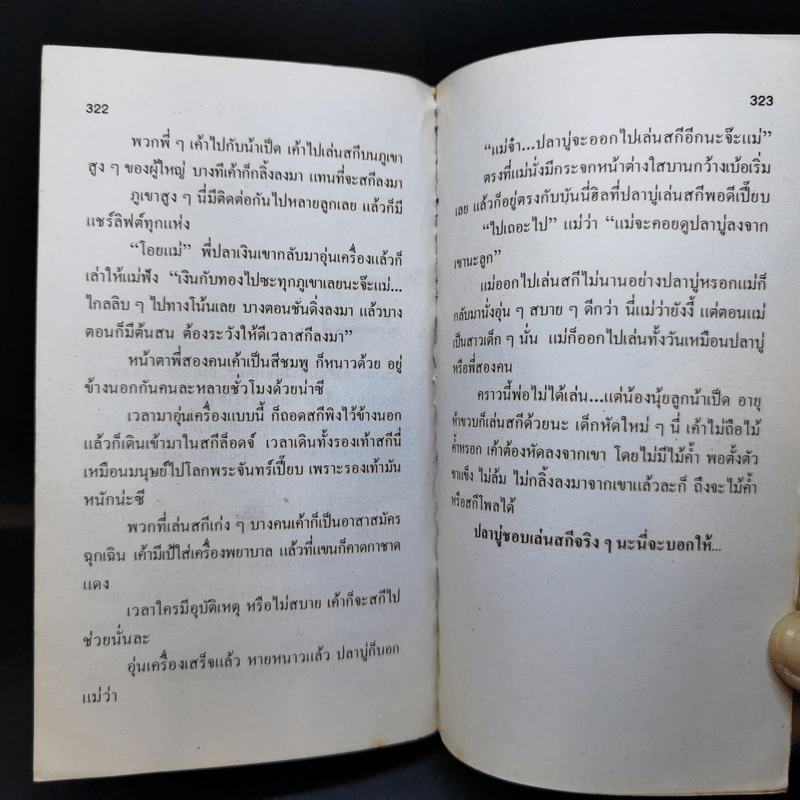 322
พวกพี่ ๆ เค้าไปกับน้าเป็ด เค้าไปเล่นสกีบนภูเขา
สูง ๆ ของผู้ใหญ่ บางทีเค้าก็กลิ้งลงมา แทนที่จะสกีลงมา
ภูเขาสูง ๆ นี่มีติดต่อกันไปหลายลูกเลย แล้วก็มี
แชร์ลิฟต์ทุกแห่ง
“โอยแม่” พี่ปลาเงินเขากลับมาอุ่นเครื่องแล้วก็
เล่าให้แม่ฟัง “เงินกับทองไปซะทุกภูเขาเลยนะจ๊ะแม่...
ไกลลิบ ๆ ไปทางโน้นเลย บางตอนชันดิ่งลงมา แล้วบาง
ตอนก็มีต้นสน ต้องระวังให้ดีเวลาสกีลงมา”
หน้าตาพี่สองคนเค้าเป็นสีชมพู ก็หนาวด้วย อยู่
ข้างนอกกันคนละหลายชั่วโมงด้วยน่าซี
เวลามาอุ่นเครื่องแบบนี้ ก็ถอดสกีพิงไว้ข้างนอก
แล้วก็เดินเข้ามาในสกีล็อดจ์ เวลาเดินทั้งรองเท้าสกีนี่
เหมือนมนุษย์ไปโลกพระจันทร์เปี๊ยบ เพราะรองเท้ามัน
หนักน่ะซี
พวกที่เล่นสกีเก่ง ๆ บางคนเค้าก็เป็นอาสาสมัคร
ฉุกเฉิน เค้ามีเป้ใส่เครื่องพยาบาล แล้วที่แขนก็คาดกาชาด
แดง
เวลาใครมีอุบัติเหตุ หรือไม่สบาย เค้าก็จะสกีไป
ช่วยนั่นละ
อุ่นเครื่องเสร็จแล้ว หายหนาวแล้ว ปลาบู่ก็บอก
แม่ว่า
323
“แม่จ๋า...ปลาบู่จะออกไปเล่นสกีอีกนะจ๊ะแม่”
ตรงที่แม่นั่งมีกระจกหน้าต่างใสบานกว้างเบ้อเริ่ม
เลย แล้วก็อยู่ตรงกับบันนี่ฮิลที่ปลาบู่เล่นสกีพอดีเปี๊ยบ
“ไปเถอะไป” แม่ว่า “แม่จะคอยดูปลาบู่ลงจาก
เขานะลูก”
แม่ออกไปเล่นสกีไม่นานอย่างปลาบู่หรอกแม่ก็
กลับมานั่งอุ่น ๆ สบาย ๆ ดีกว่า นี่แม่ว่ายังงี้ แต่ตอนแม่
เป็นสาวเด็ก ๆ นั่น แม่ก็ออกไปเล่นทั้งวันเหมือนปลาบู่
หรือพี่สองคน
คราวนี้พ่อไม่ได้เล่น...แต่น้องนุ้ยลูกน้าเป็ด อายุ
ห้าขวบก็เล่นสกีด้วยนะ เด็กหัดใหม่ ๆ นี่ เค้าไม่ถือไม้
ค้ำหรอก เค้าต้องหัดลงจากเขา โดยไม่มีไม้ค้ำ พอตั้งตัว
ขาแข็ง ไม่ล้ม ไม่กลิ้งลงมาจากเขาแล้วละก็ ถึงจะไม้ค้ำ
หรือสกีโพลได้
ปลาบู่ชอบเล่นสกีจริง ๆ นะนี่จะบอกให้...